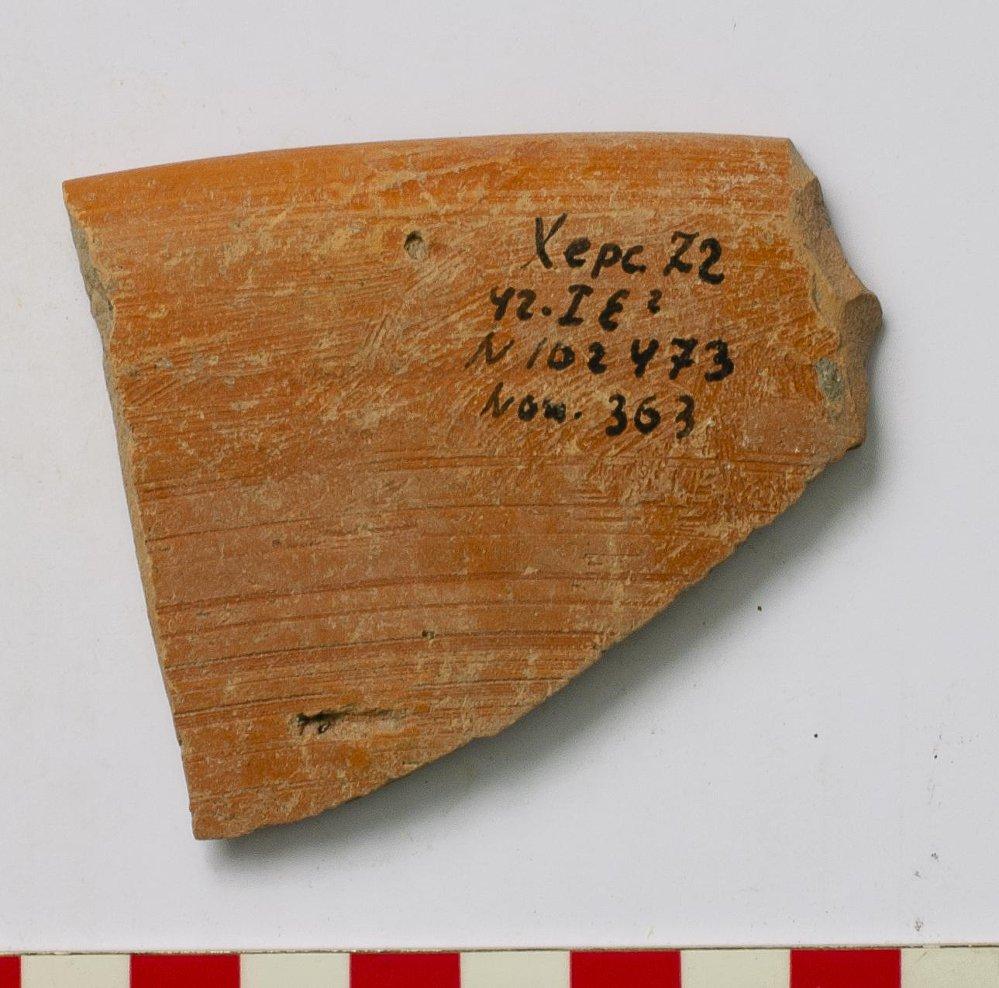 Херс 72
уч. I Б²
N 102473
Пом. 363